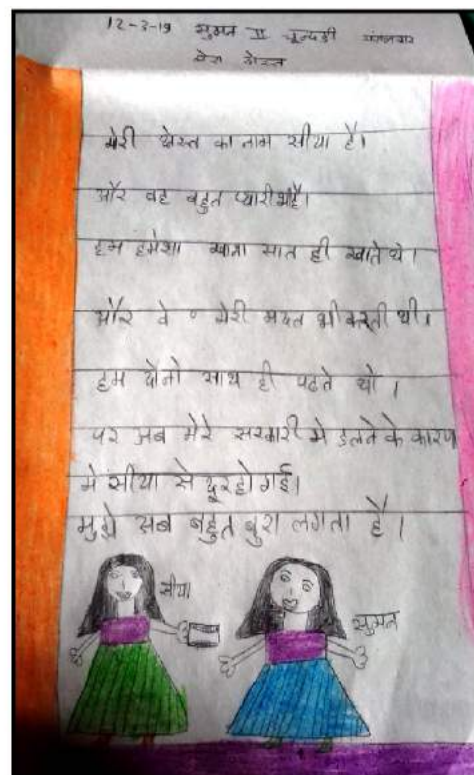 12-3-19 सुमन II चून्दडी मंगलवार
मेरा दोस्त
मेरी दोस्त का नाम सीया है।
और वह बहुत प्यारी भी है।
हम हमेशा खाना सात ही खाते थे।
और वे मेरी मदत भी करती थी।
हम दोनो साथ ही पढते थे।
पर अब मेरे सरकारी मे डलने के कारण
में सीया से दूर हो गई।
मुझे अब बहुत बुरा लगता है।
सीया
सुमन